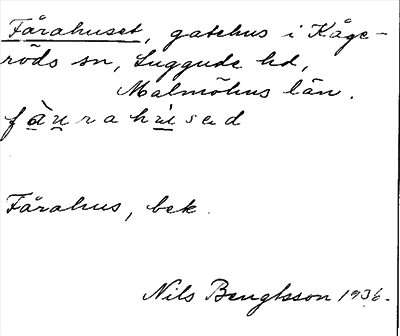 Fårahuset, gatehus i Kåge-
röds sn, Luggude hd,
Malmöhus län.
fàurahúised
Fårahus, bek.
Nils Bengtsson 1936.